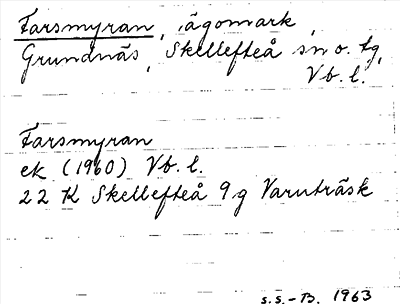 Farsmyran, ägomark,
Grundnäs, Skellefteå sn o. tg,
Vb. l.
Farsmyran
ek (1960) Vb. l.
22 K Skellefteå 9 g Varuträsk
s.s.-B. 1963